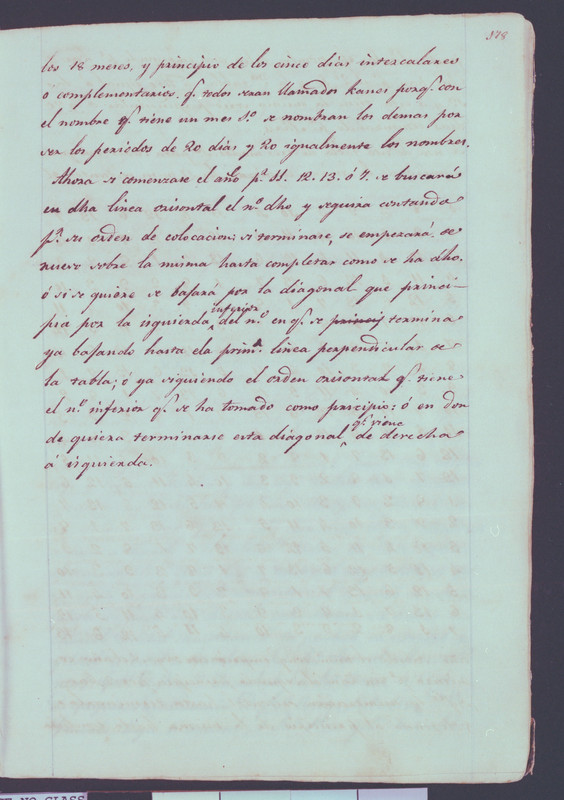 378
los 18 meses, y principio de los cinco dias intercalares
ó complementarios, qe. todos seran llamados kanes porqe. con
el nombre qe. tiene un mes 1º. se nombran los demas por
ser los periódos de 20 dias y 20 igualmente los nombres.
Ahora si comenzare el año pr. 11. 12. 13. ó 7. se buscará
en dha linea orisontal el nº. dho y seguira contando
pr. su orden de colocacion; si terminase, se empezará de
nuevo sobre la misma hasta completar como se ha dho.
ó si se quiere se bajará por la diagonal que princi-
pia por la isquierda inferior del nº. en qe. se princip termina
ya bajando hasta ela prima. linea perpendicular de
la tabla; ó ya siguiendo el orden orisontal qe. tiene
el nº. inferior qe. se ha tomado como pricipio; ó en don
de quiera terminarse esta diagonal qe. viene de derecha
á isquierda.